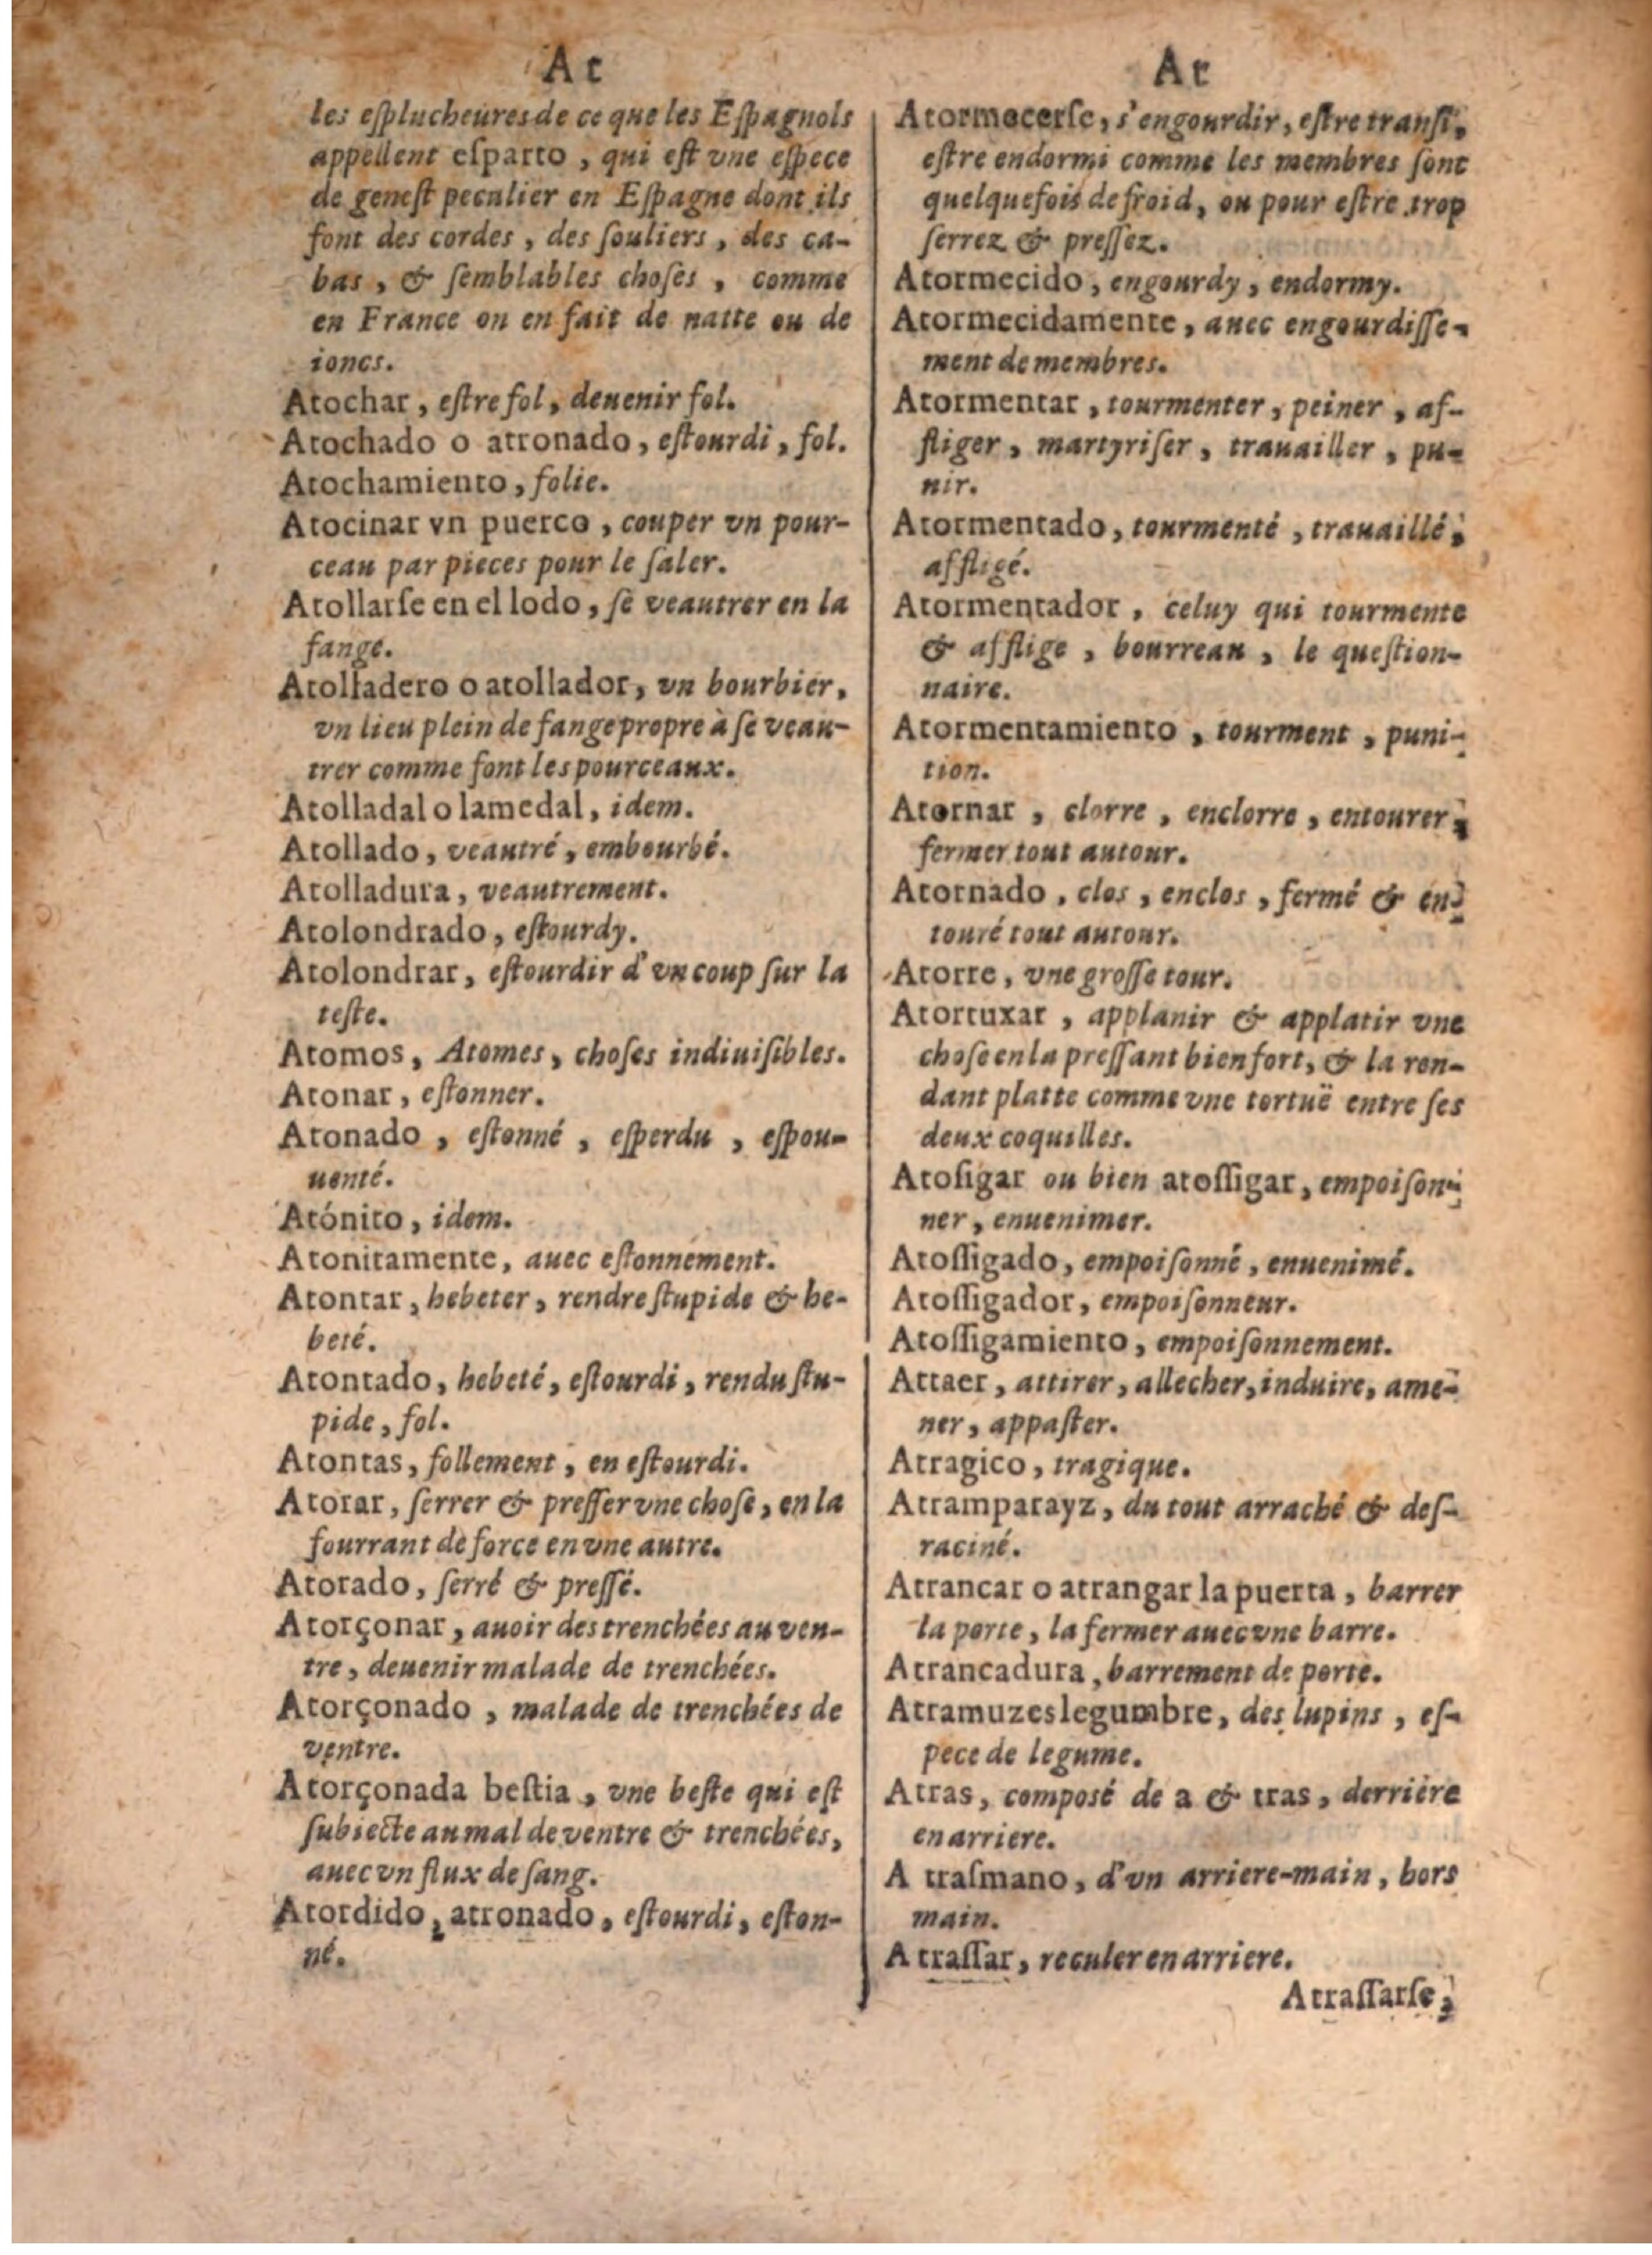 At
les esplucheures de ce que les Espagnols
appellent esparto, qui est vne espece
de genest peculier en Espagne dont ils
font des cordes, des souliers, des ca-
bas, & semblables choses, comme
en France on en fait de natte ou de
ioncs.
Atochar, estre fol, deuenir fol.
Atochado o atronado, estourdi, fol.
Atochamiento, folie.
Atocinar vn puerco, couper vn pour-
ceau par pieces pour le saler.
Atollarse en el lodo, se veautrer en la
fange.
Atolladero o atollador, vn bourbier,
vn lieu plein de fange propre à se veau-
trer comme font les pourceaux.
Atolladal o lamedal, idem.
Atollado, veautré, embourbé.
Atolladura, veautrement.
Atolondrado, estourdy.
Atolondrar, estourdir d'vn coup sur la
teste.
Atomos, Atomes, choses indiuisibles.
Atonar, estonner.
Atonado, estonné, esperdu, espou-
uenté.
Atónito, idem.
Atonitamente, auec estonnement.
Atontar, hebeter, rendre stupide & he-
beté.
Atontado, hebeté, estourdi, rendu stu-
pide, fol.
Atontas, follement, en estourdi.
Atorar, serrer & presser vne chose, en la
fourrant de force en vne autre.
Atorado, serré & pressé.
Atorçonar, auoir des trenchées au ven-
tre, deuenir malade de trenchées.
Atorçonado, malade de trenchées de
ventre.
Atorçonada bestia, vne beste qui est
subiecte au mal de ventre & trenchées,
auec vn flux de sang.
Atordido, atronado, estourdi, eston-
né.
At
Atormecerse, s'engourdir, estre transi,
estre endormi comme les membres sont
quelquefois de froid, ou pour estre trop
serrez & pressez.
Atormecido, engourdy, endormy.
Atormecidamente, auec engourdisse-
ment de membres.
Atormentar, tourmenter, peiner, af-
fliger, martyriser, trauailler, pu-
nir.
Atormentado, tourmenté, trauaillé,
affligé.
Atormentador, celuy qui tourmente
& afflige, bourreau, le question-
naire.
Atormentamiento, tourment, puni-
tion.
Atornar, clorre, enclorre, entourer,
fermer tout autour.
Atornado, clos, enclos, fermé & en-
touré tout autour.
Atorre, vne grosse tour.
Atortuxar, applanir & applatir vne
chose en la pressant bien fort, & la ren-
dant platte comme vne tortuë entre ses
deux coquilles.
Atosigar ou bien atossigar, empoison-
ner, enuenimer.
Atossigado, empoisonné, enuenimé.
Atossigador, empoisonneur.
Atossigamiento, empoisonnement.
Attaer, attirer, allecher, induire, ame-
ner, appaster.
Atragico, tragique.
Atramparayz, du tout arraché & des-
raciné.
Atrancar o atrangar la puerta, barrer
la porte, la fermer auec vne barre.
Atrancadura, barrement de porte.
Atramuzes legumbre, des lupins, es-
pece de legume.
Atras, composé de a & tras, derriere
en arriere.
A trasmano, d'vn arriere-main, hors
main.
Atrassar, reculer en arriere.
Atrassarse,